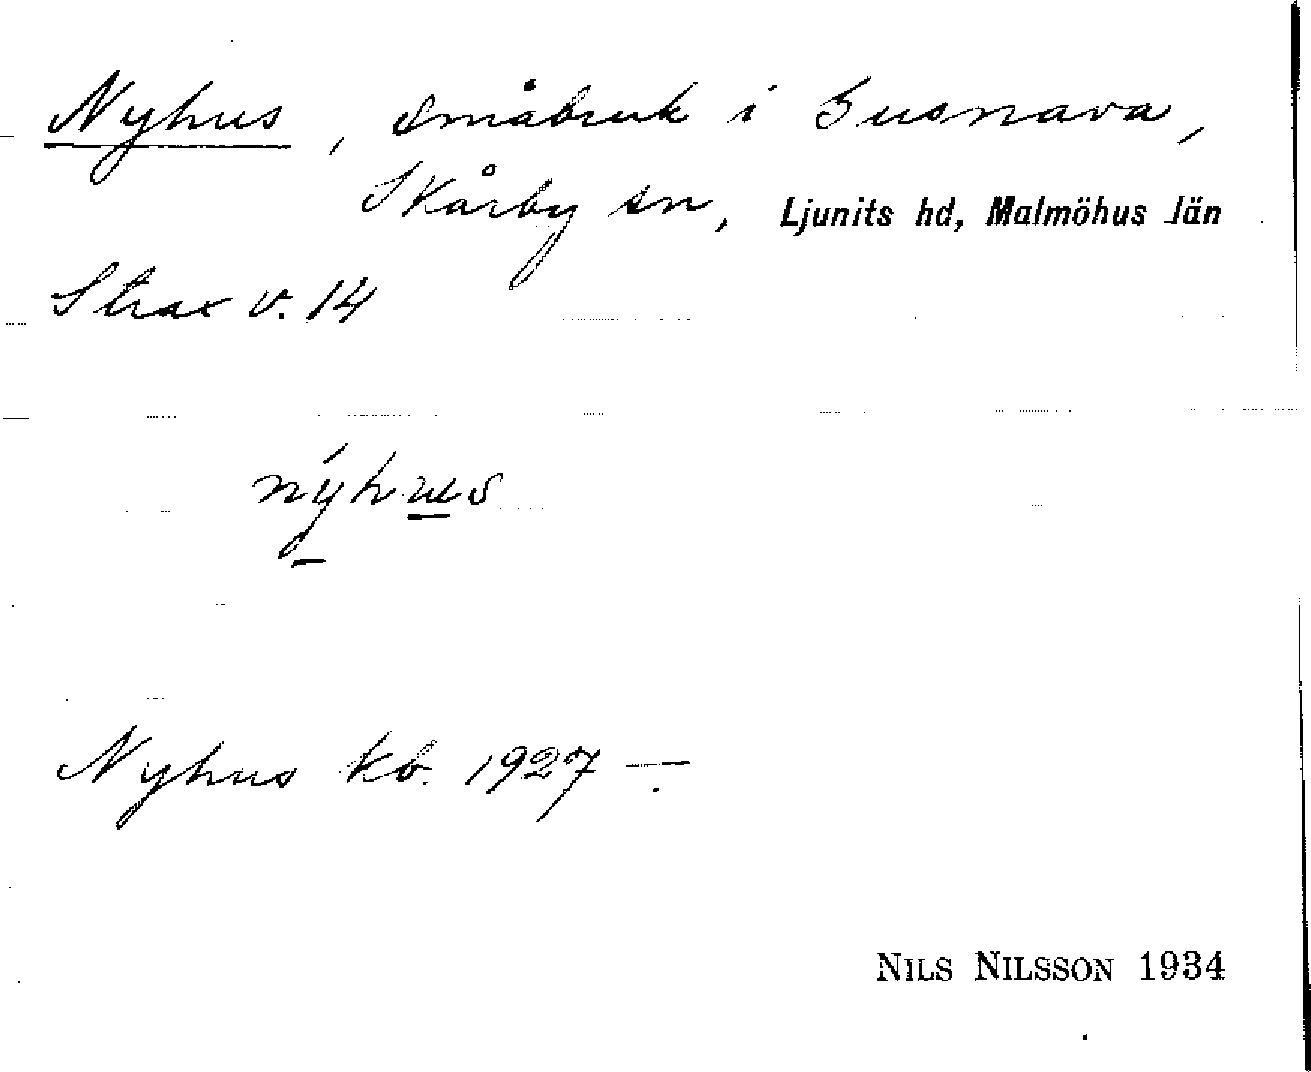 Nyhus, småbruk i Gusnava,
Skårby sn, Ljunits hd, Malmöhus län
Strax v. 14
nýhus
Nyhus kb. 1927 —.
NILS NILSSON 1934